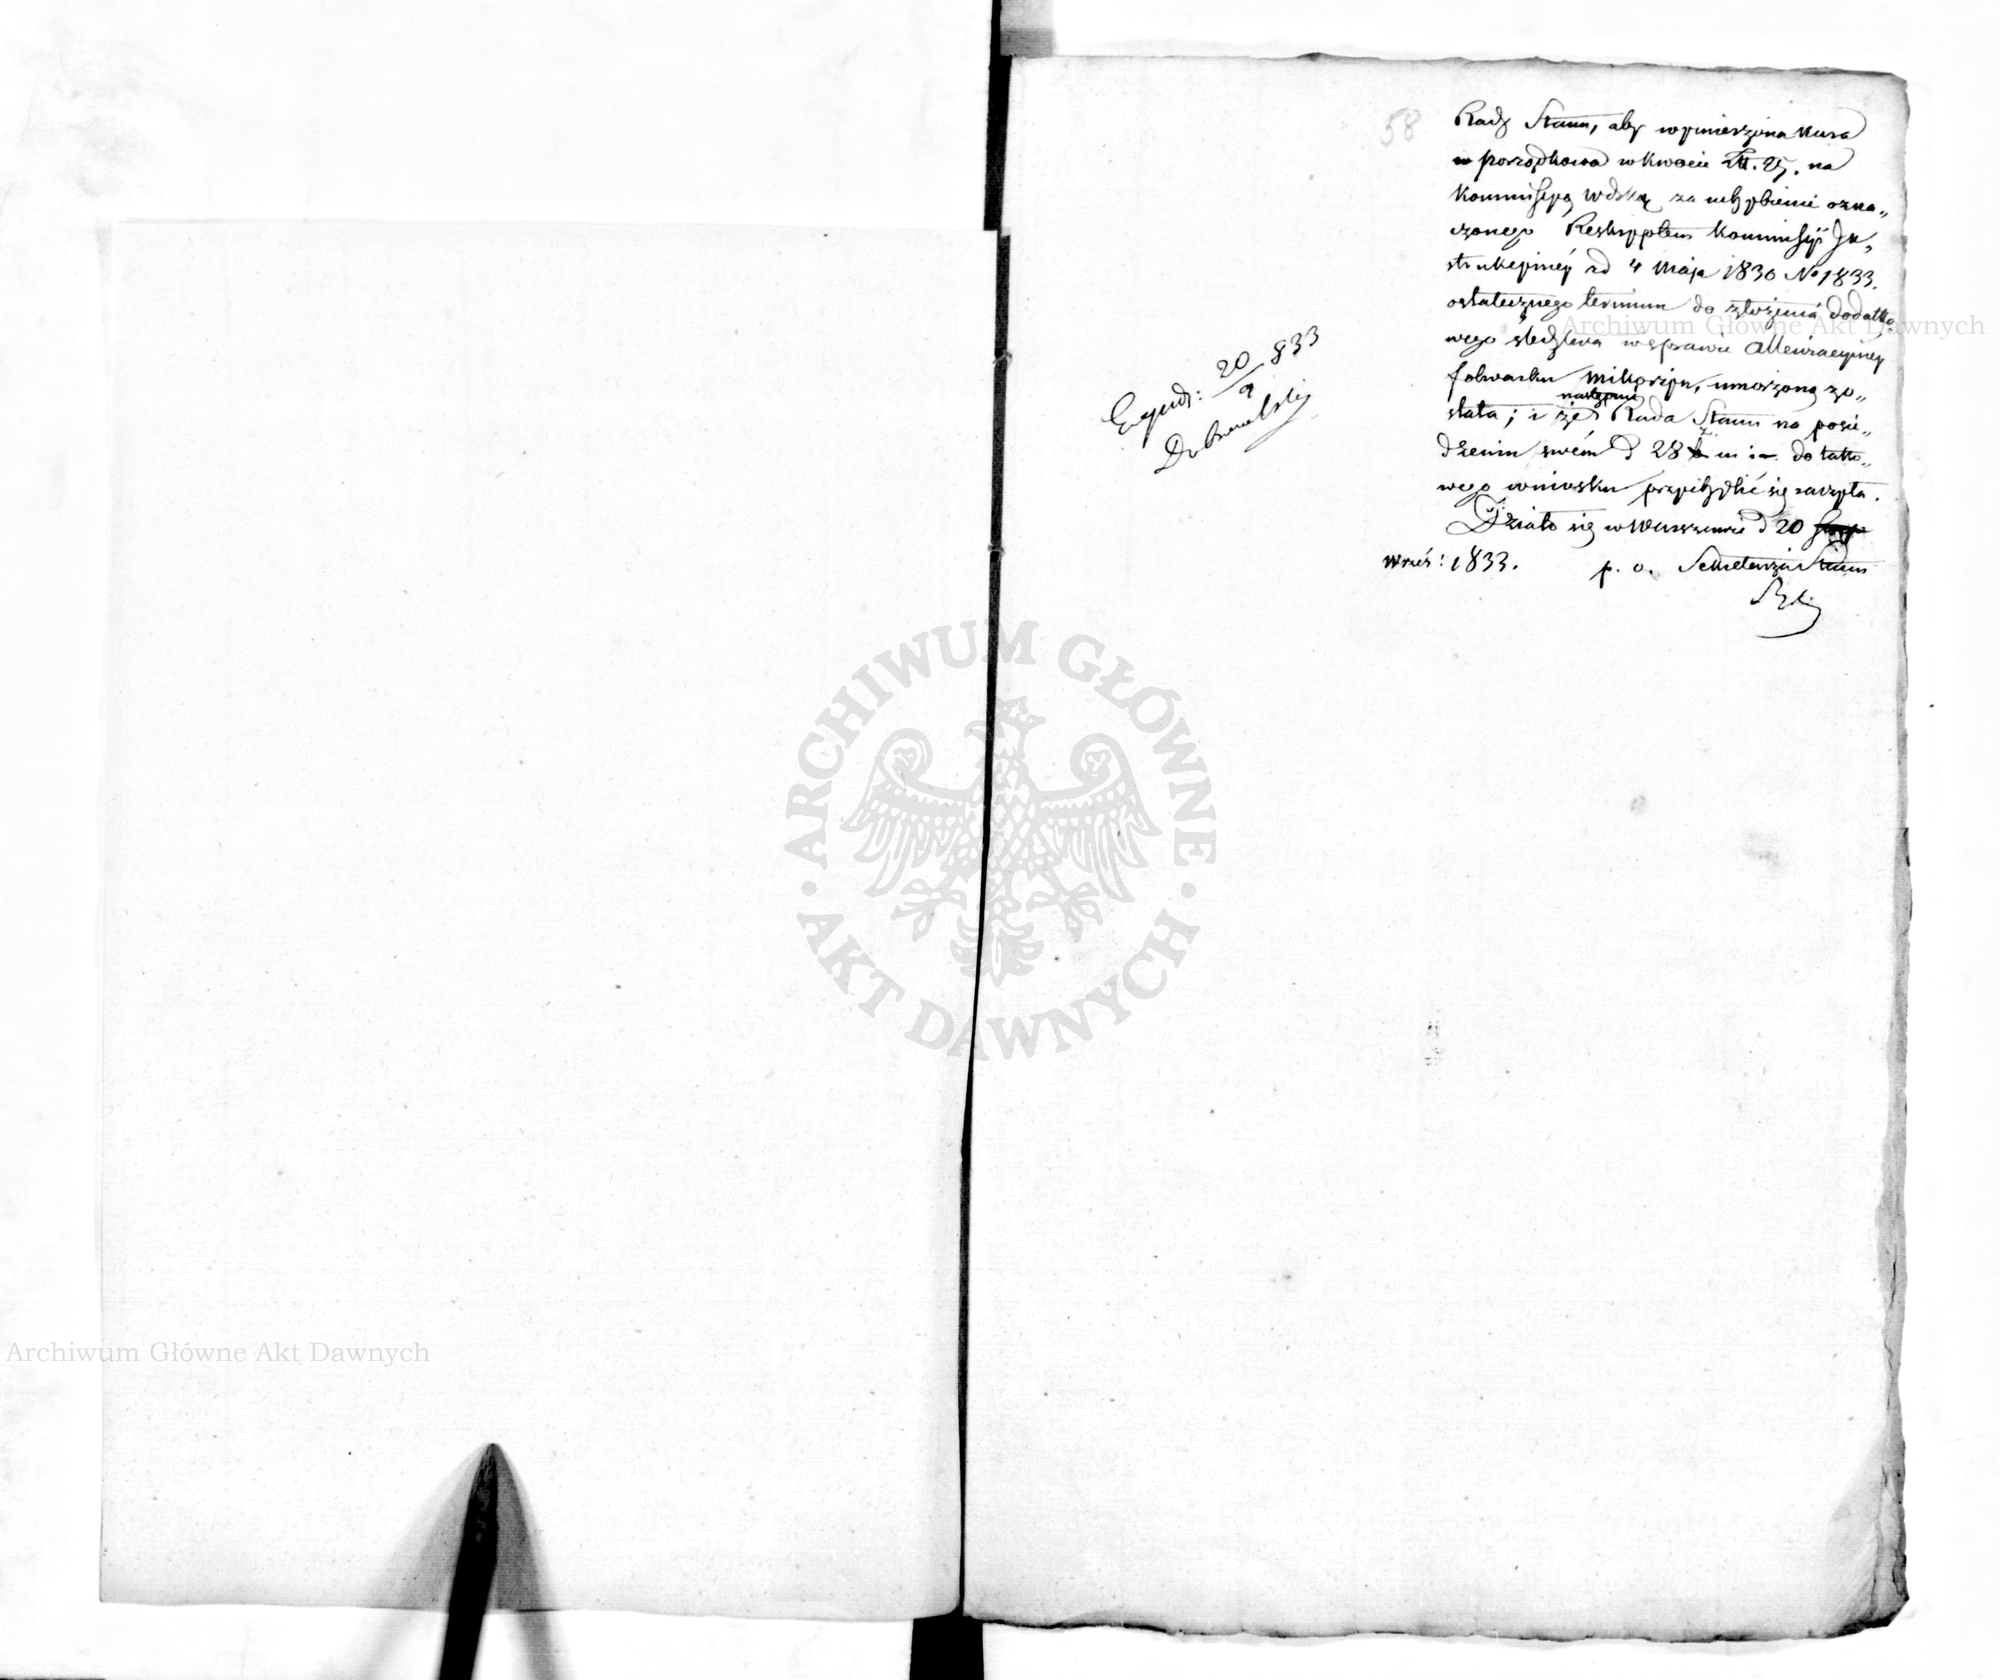 58
Rady Stanu, aby wymierzona kara
porządkowa w kwocie Zł. 25. na
Kommissyą Wdzką za uchybienie ozna„
czonego Reskryptem Kommissyi In„
strukcyinéy z d 4 Maja 1830 No 1833.
ostatecznego terminu do złożenia dodatko
wego śledztwa w sprawie
folwarku umorzoną zo„
stała; i że następnie Rada Stanu na posie„
dzeniu swém d 28 do tako„
wego wniosku przychylić się raczyła.
Działo się w Warszawie d 20
Wrześ: 1833. p. o. Sekretarza Stanu
Exped: 20/9 833
ARCHIWUM GŁÓWNE AKT DAWNYCH
Archiwum Główne Akt Dawnych
Archiwum Główne Akt Dawnych